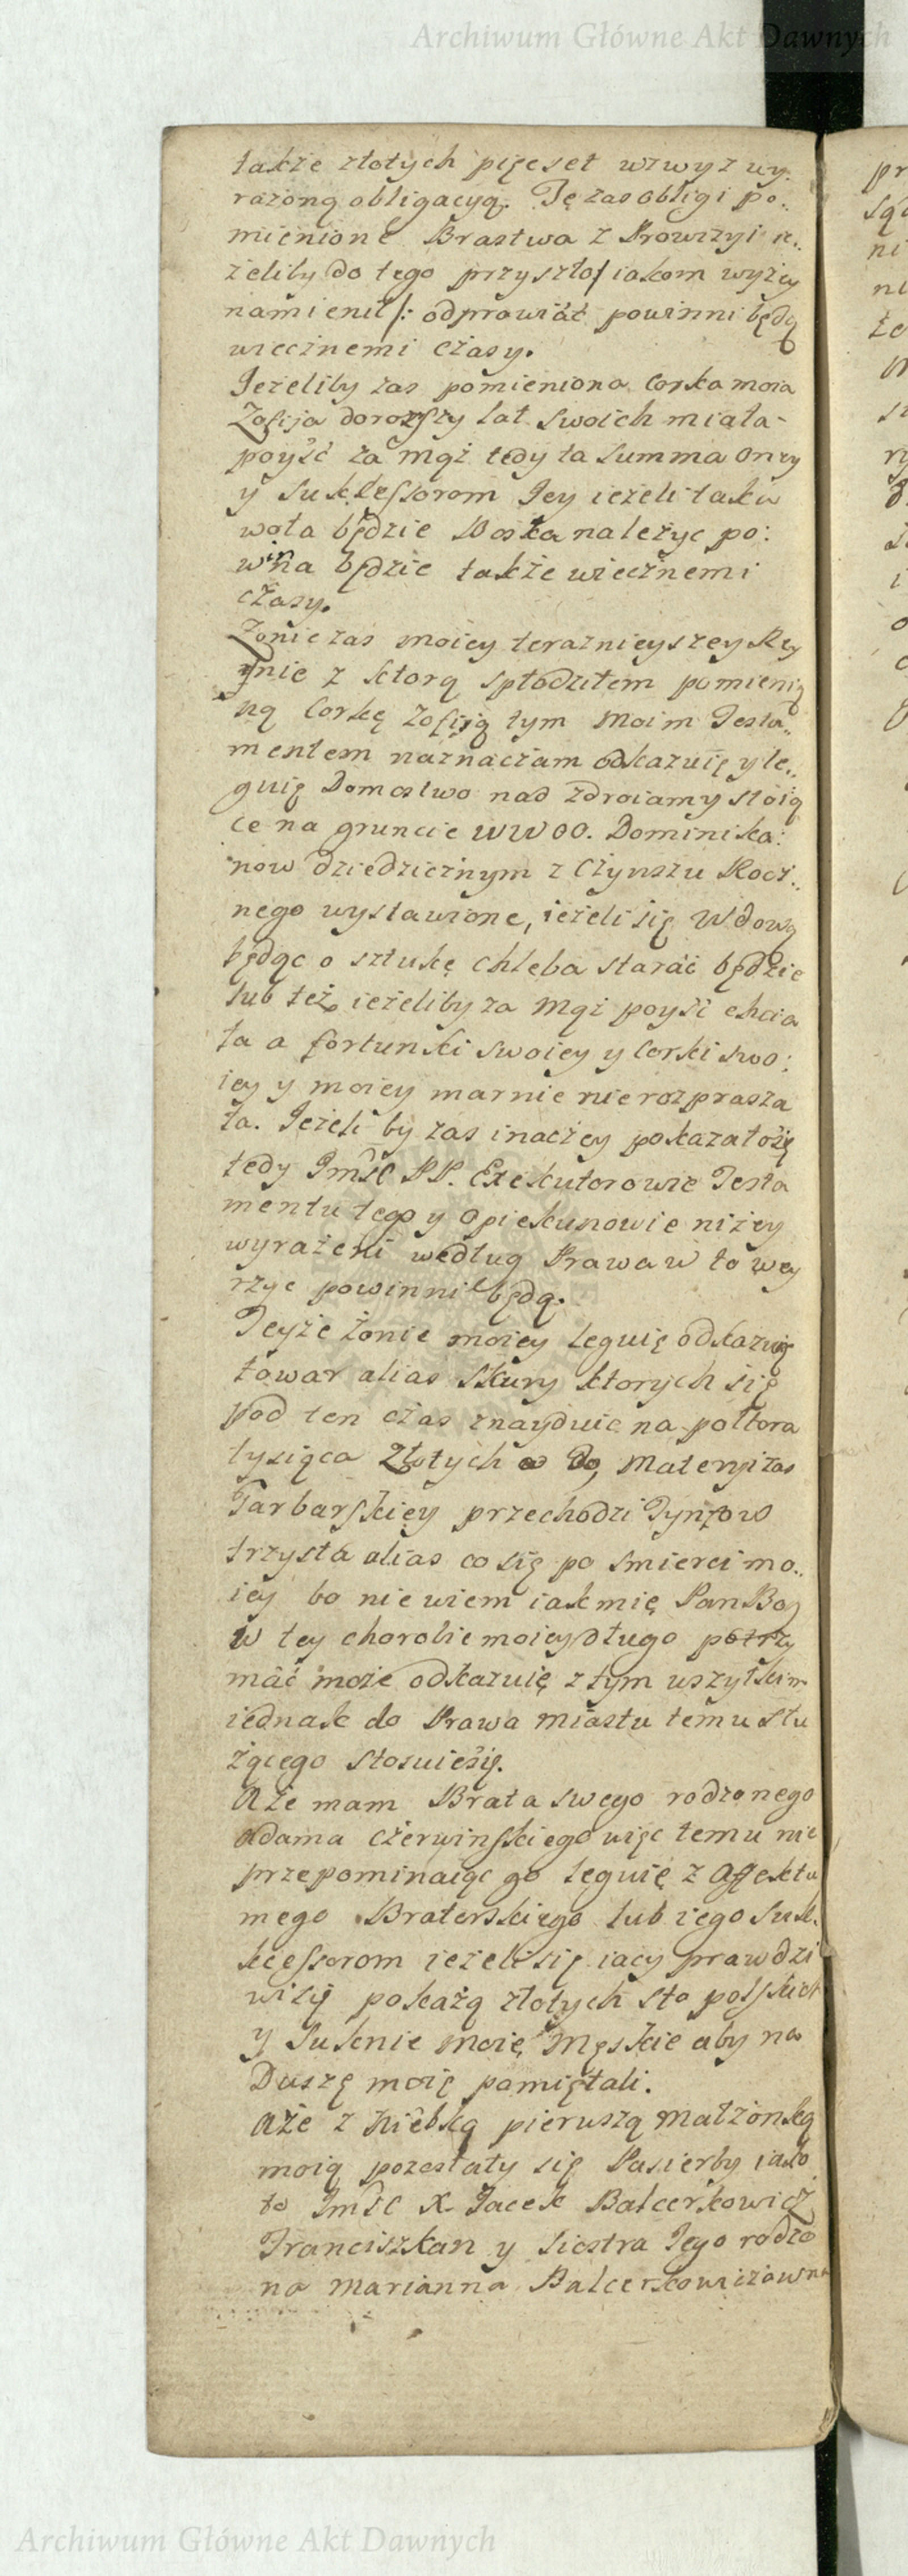 Archiwum Główne Akt Dawnych
także złotych pięcset wzwyz wy.
rażoną obligacyą. Tę zas obligi po..
mienione Brastwa z Prowizyi ie..
żeliby do tego przyszło/ iakom wyżey
namienił/: odprawiać powinni będą
wiecznemi czasy.
Jeżeliby zas pomieniona Corka moia
Zofija dorozszy lat swoich miała-
poyść za mąż tedy ta Summa Onzy
y Sukkessorom Jey ieżeli taka
wola będzie Boska należyc po:
winna będzie także wiecznemi
czasy.
Zonie zas moiey teraznieyszey Re
jnie z ktorą spłodziłem pomienio
ną Corkę Zofiją tym Moim Testa..
mentem naznaczam odkazuię y le..
guię Domostwo nad Zdroiamy stoią
ce na gruncie WWOO. Dominika:
now dziedzicznym z Czynszu Rocz..
nego wystawione, ieżeli się Wdową
będąc o sztukę chleba starać będzie
lub też ieżeliby za Mąż poyść chcia
ła a fortunki swoiey y Corki swo:
iey y moiey marnie nie rozprasza
ła. Jeżeli by zas inaczey pokazało się
tedy Jmść PP. Exekutorowie Testa
mentu tego y Opiekunowie niżey
wyrażeni według Prawa w to wey
rzyc powinni będą.
Teyże żonie moiey leguię odkazuię
towar alias Skury ktorych się
pod ten czas znayduie na połtora
tysiąca Złotych a do Materyi zas
Garbarskiey przechodzi Tynfow
trzysta alias co się po smierci mo..
iey bo nie wiem iak mię Pan Bog
w tey chorobie moiey długo potrzy
mać może odkazuię z tym wszytkim
iednak do Prawa Miastu temu słu
żącego stosuie się.
Aże mam Brata swego rodzonego
Adama Czerwinskiego więc temu nie
przepominaiąc go leguię z Affektu
mego Braterskiego lub iego Suk.
kcessorom ieżeli się iacy prawdzi
wi się pokażą złotych sto polskich
y Suknie moię Męskie aby na
Duszę moię pamiętali.
Aże z Niebką pierwszą Małzonką
moią pozostały się Pasierby iako
to Jmść X. Jacek Balcerkowicz
Franciszkan y Siostra Jego rodzo
na Marianna Balcerkowiczowna
Archiwum Główne Akt Dawnych